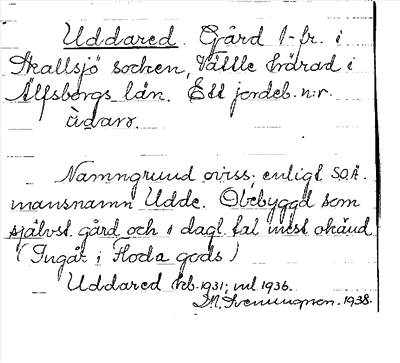 Uddared. Gård 1-br. i
Skallsjö socken, Vättle härad i
Älfsborgs län. Ett jordeb.n:r.
Namngrund oviss. enligt SOÄ.
mansnamn Udde. Obebyggd som
självst. gård och i dagl. tal mest okänd
(Ingår i Floda gods)
Uddared hb. 1931; ml 1936.
1938.